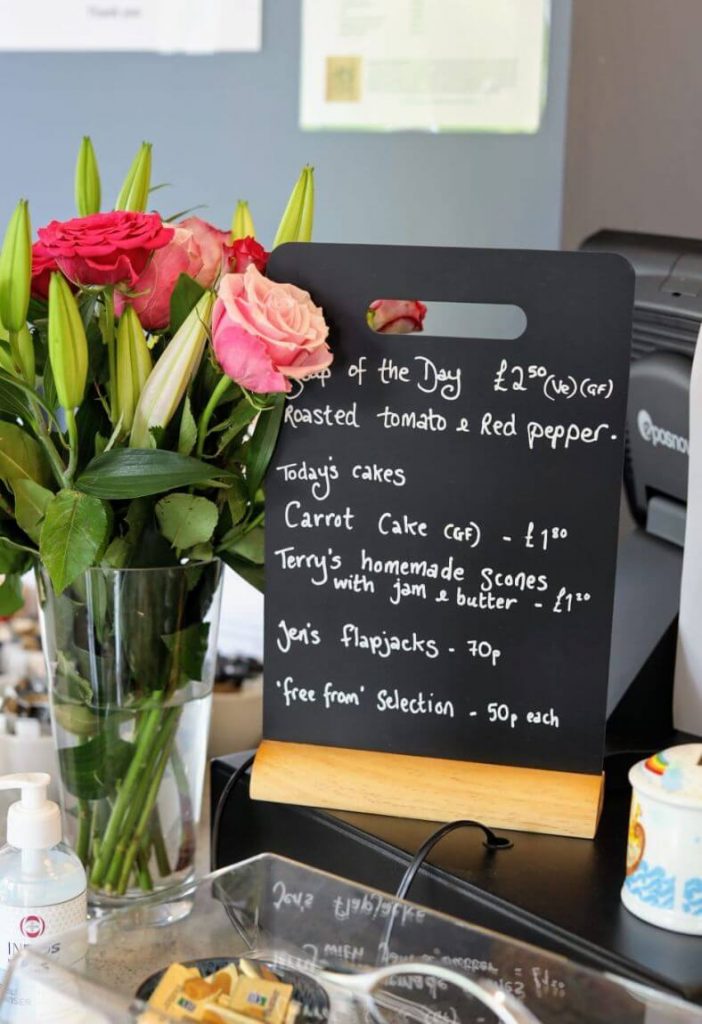 Thank you
of the Day £2⁵⁰ (Ve) (GF)
Roasted tomato & Red pepper.
Today's cakes
Carrot Cake (GF) - £1⁸⁰
Terry's homemade Scones
with jam & butter - £1²⁰
Jen's flapjacks - 70p
'free from' Selection - 50p each
eposnow